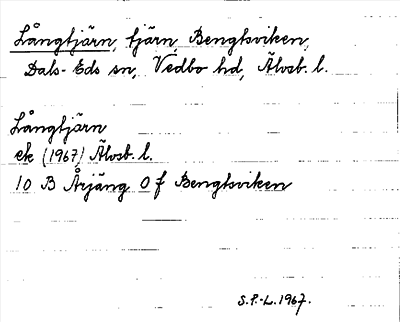 Långtjärn, tjärn, Bengtsviken,
Dals-Eds sn, Vedbo hd, Älvsb. l.
Långtjärn
ek (1967) Älvsb. l.
10 B Årjäng 0 f Bengtsviken
S.P.-L. 1967.